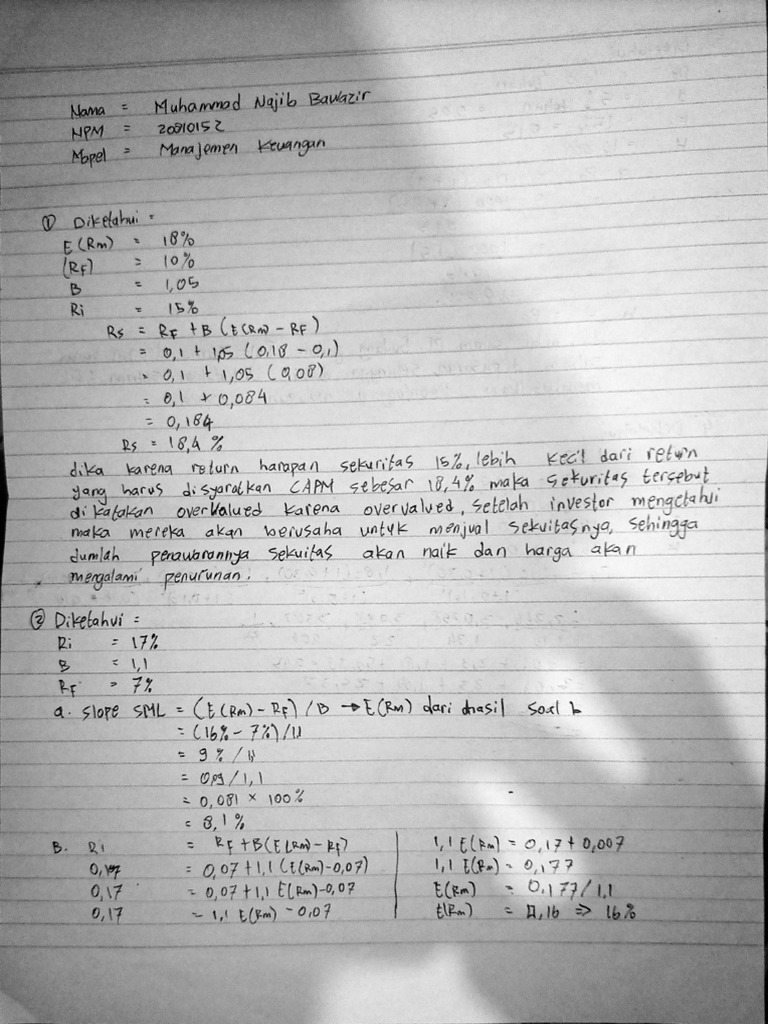 Nama = Muhammad Najib Bawazir
NPM = 20210152
Mapel = Manajemen Keuangan
① Diketahui =
E(Rm) = 18%
(RF) = 10%
B = 1,05
Ri = 15%
Rs = RF + B (E(Rm) - RF)
= 0,1 + 1,05 (0,18 - 0,1)
= 0,1 + 1,05 (0,08)
= 0,1 + 0,084
= 0,184
Rs = 18,4 %
Jika karena return harapan sekuritas 15%, lebih kecil dari return
yang harus disyaratkan CAPM sebesar 18,4% maka sekuritas tersebut
dikatakan overvalued karena overvalued, setelah investor mengetahui
maka mereka akan berusaha untuk menjual sekuitasnya, sehingga
Jumlah penawarannya sekuitas akan naik dan harga akan
mengalami penurunan.
② Diketahui =
Ri = 17%
B = 1,1
RF = 7%
a. Slope SML = (E(Rm) - RF) / B → E(Rm) dari hasil soal b
= (16% - 7%) / 1,1
= 9 % / 1,1
= 0,09 / 1,1
= 0,081 × 100%
= 8,1 %
B. Ri = RF + B (E(Rm) - RF)
0,17 = 0,07 + 1,1 (E(Rm) - 0,07)
0,17 = 0,07 + 1,1 E(Rm) - 0,07
0,17 = 1,1 E(Rm) - 0,07
1,1 E(Rm) = 0,17 + 0,007
1,1 E(Rm) = 0,177
E(Rm) = 0,177 / 1,1
E(Rm) = 0,16 ⇒ 16%